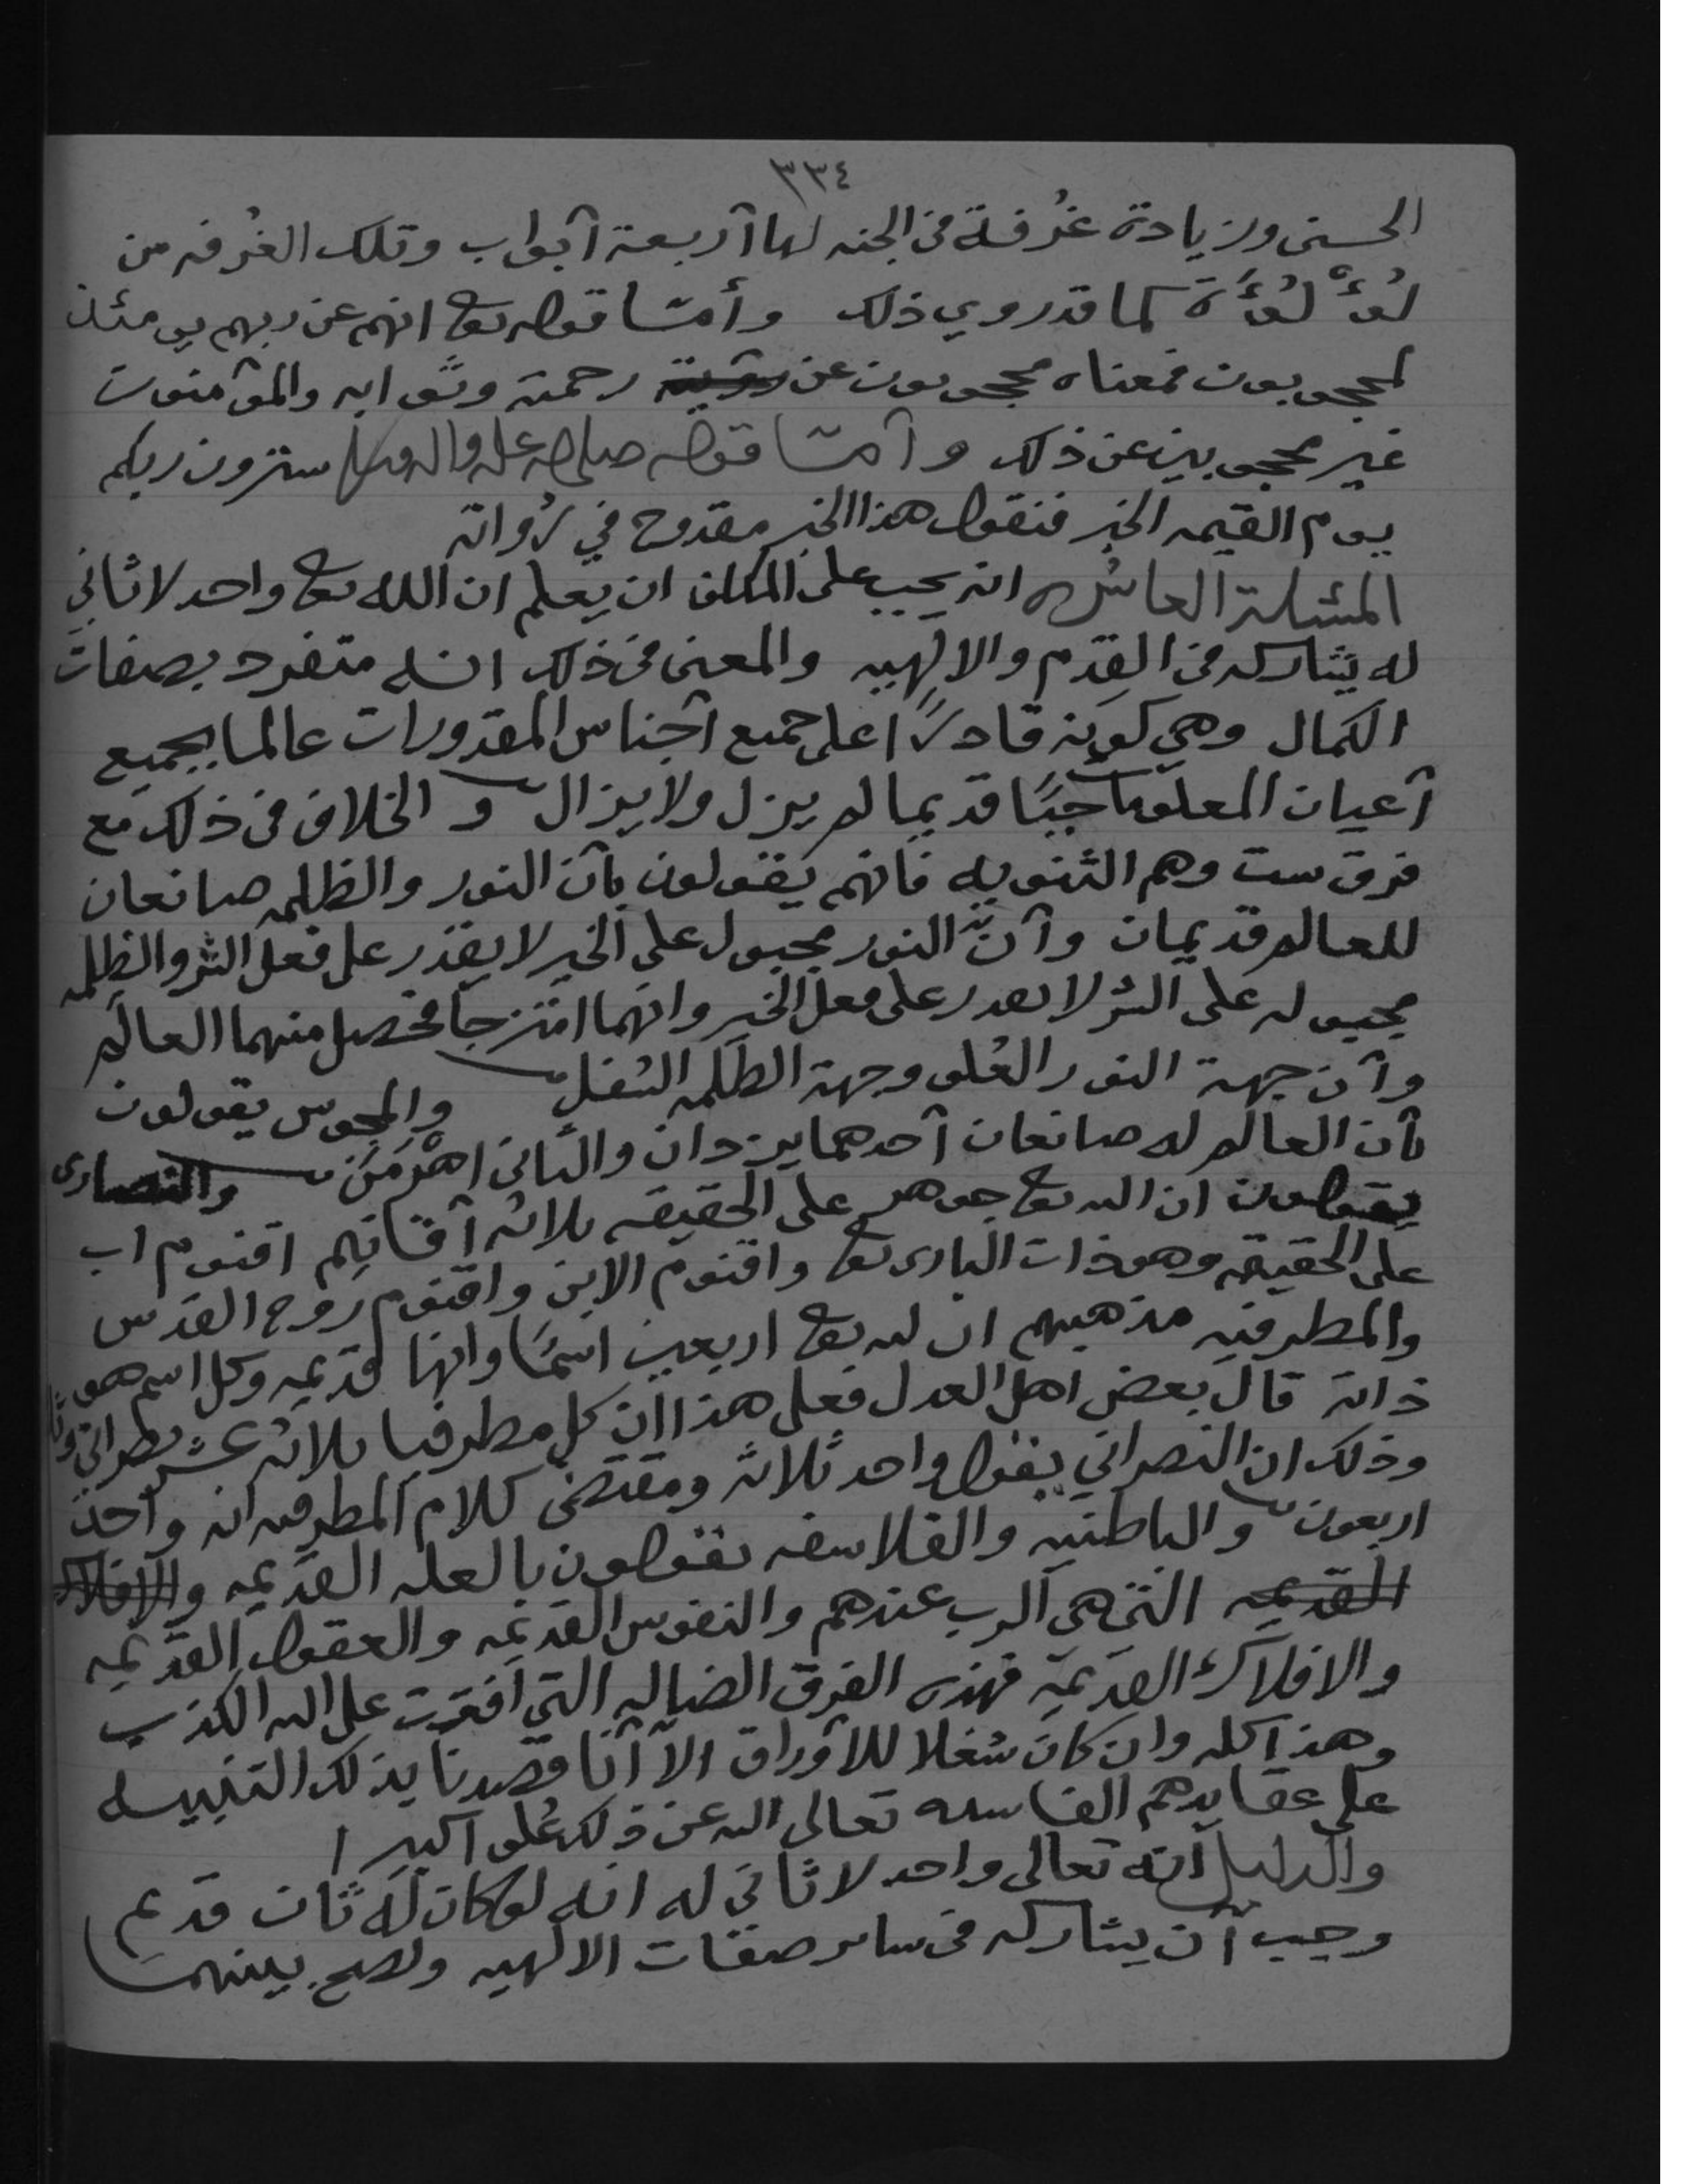 ٣٣٤
الحسنى وزيادة غُرفة في الجنه لها أربعة أبواب وتلك الغُرفه من
لُؤْلُؤَة كما قد روي ذلك وأمّا قوله تعا انهم عن ربهم يومئذ
لمحجوبون فمعناه محجوبون عن رؤية رحمته وثوابه والمؤمنون
غير محجوبين عن ذلك وأمّا قوله صلى الله عليه واله وسلم سترون ربكم
يوم القيمه الخبر فنقول هذا الخبر مقدوح في رُواته
المسئلة العاشره انه يجب على المكلف ان يعلم ان الله تعا واحد لا ثاني
له يشاركه في القِدم والالهيه والمعنى في ذلك انه متفرد بصفات
الكمال وهي كونه قادرًا على جميع أجناس المقدورات عالما بجميع
أعيان المعلومات حيًا قديما لم يزل ولا يزال و الخلاف في ذلك مع
فرق ست وهم الثنويه فانهم يقولون بأن النور والظلمه صانعان
للعالم قديمان وأنّ النور مجبول على الخير لا يقدر على فعل الشر والظلمه
مجبوله على الشر لا يقدر على فعل الخير وانهما امتزجا فحصل منهما العالم
وأن جهة النور العُلو وجهة الظلمه السُفل والمجوس يقولون
بأن العالم له صانعان أحدهما يزدان والثاني اهْرَمَن والنصارى
يقولون ان الله تعا جوهر على الحقيقه ثلاثه أقانيم اقنوم اب
على الحقيقه وهو ذات البارى تعا واقنوم الابن واقنوم روح القدس
والمطرفيه مذهبهم ان لله تعا اربعين اسمًا وانها قديمه وكل اسم هو
ذاته قال بعض اهل العدل فعلى هذا ان كل مطرفيا ثلاثه عشر نصراني
وذلك ان النصراني يقول واحد ثلاثه ومقتضى كلام المطرفيه انه واحد
اربعون والباطنيه والفلاسفه يقولون بالعله القديمه والافلاك
القديمه التي هي الرب عندهم والنفوس القديمه والعقول القديمه
والافلاك القديمة فهذه الفرق الضاله التي افترت على الله الكذب
وهذا كله وان كان شغلا للأوراق الا أنا قصدنا بذلك التنبيه
على عقايدهم الفاسده تعالى الله عن ذلك عُلوا كبيرا
والدليل انه تعالى واحد لا ثاني له انه لو كان له ثان قديم
وجب أن يشاركه في ساير صفات الالهيه ولصح بينهما